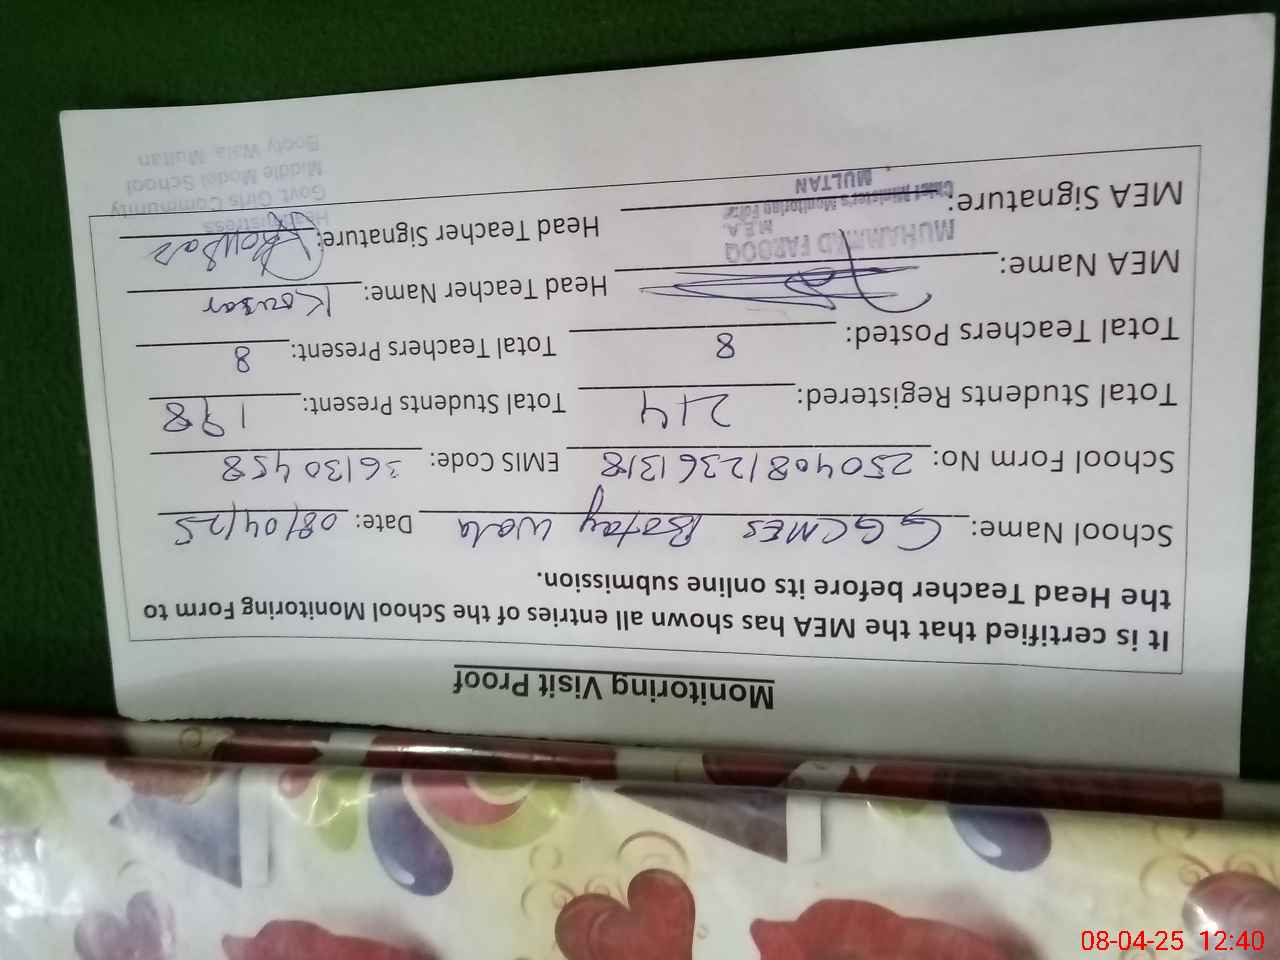 Monitoring Visit Proof
It is certified that the MEA has shown all entries of the School Monitoring Form to
the Head Teacher before its online submission.
School Name: GGCMES Botay wala Date: 08/04/25
School Form No: 25040812361318 EMIS Code: 36130458
Total Students Registered: 214 Total Students Present: 198
Total Teachers Posted: 8 Total Teachers Present: 8
MEA Name: Head Teacher Name: Kousar
MUHAMMAD FAROOQ
M.E.A.
MEA Signature: Head Teacher Signature: Kousar
Chief Minister's Monitoring Force
MULTAN
Headmistress
Govt. Girls Community
Middle Model School
Booty Wala, Multan
08-04-25 12:40